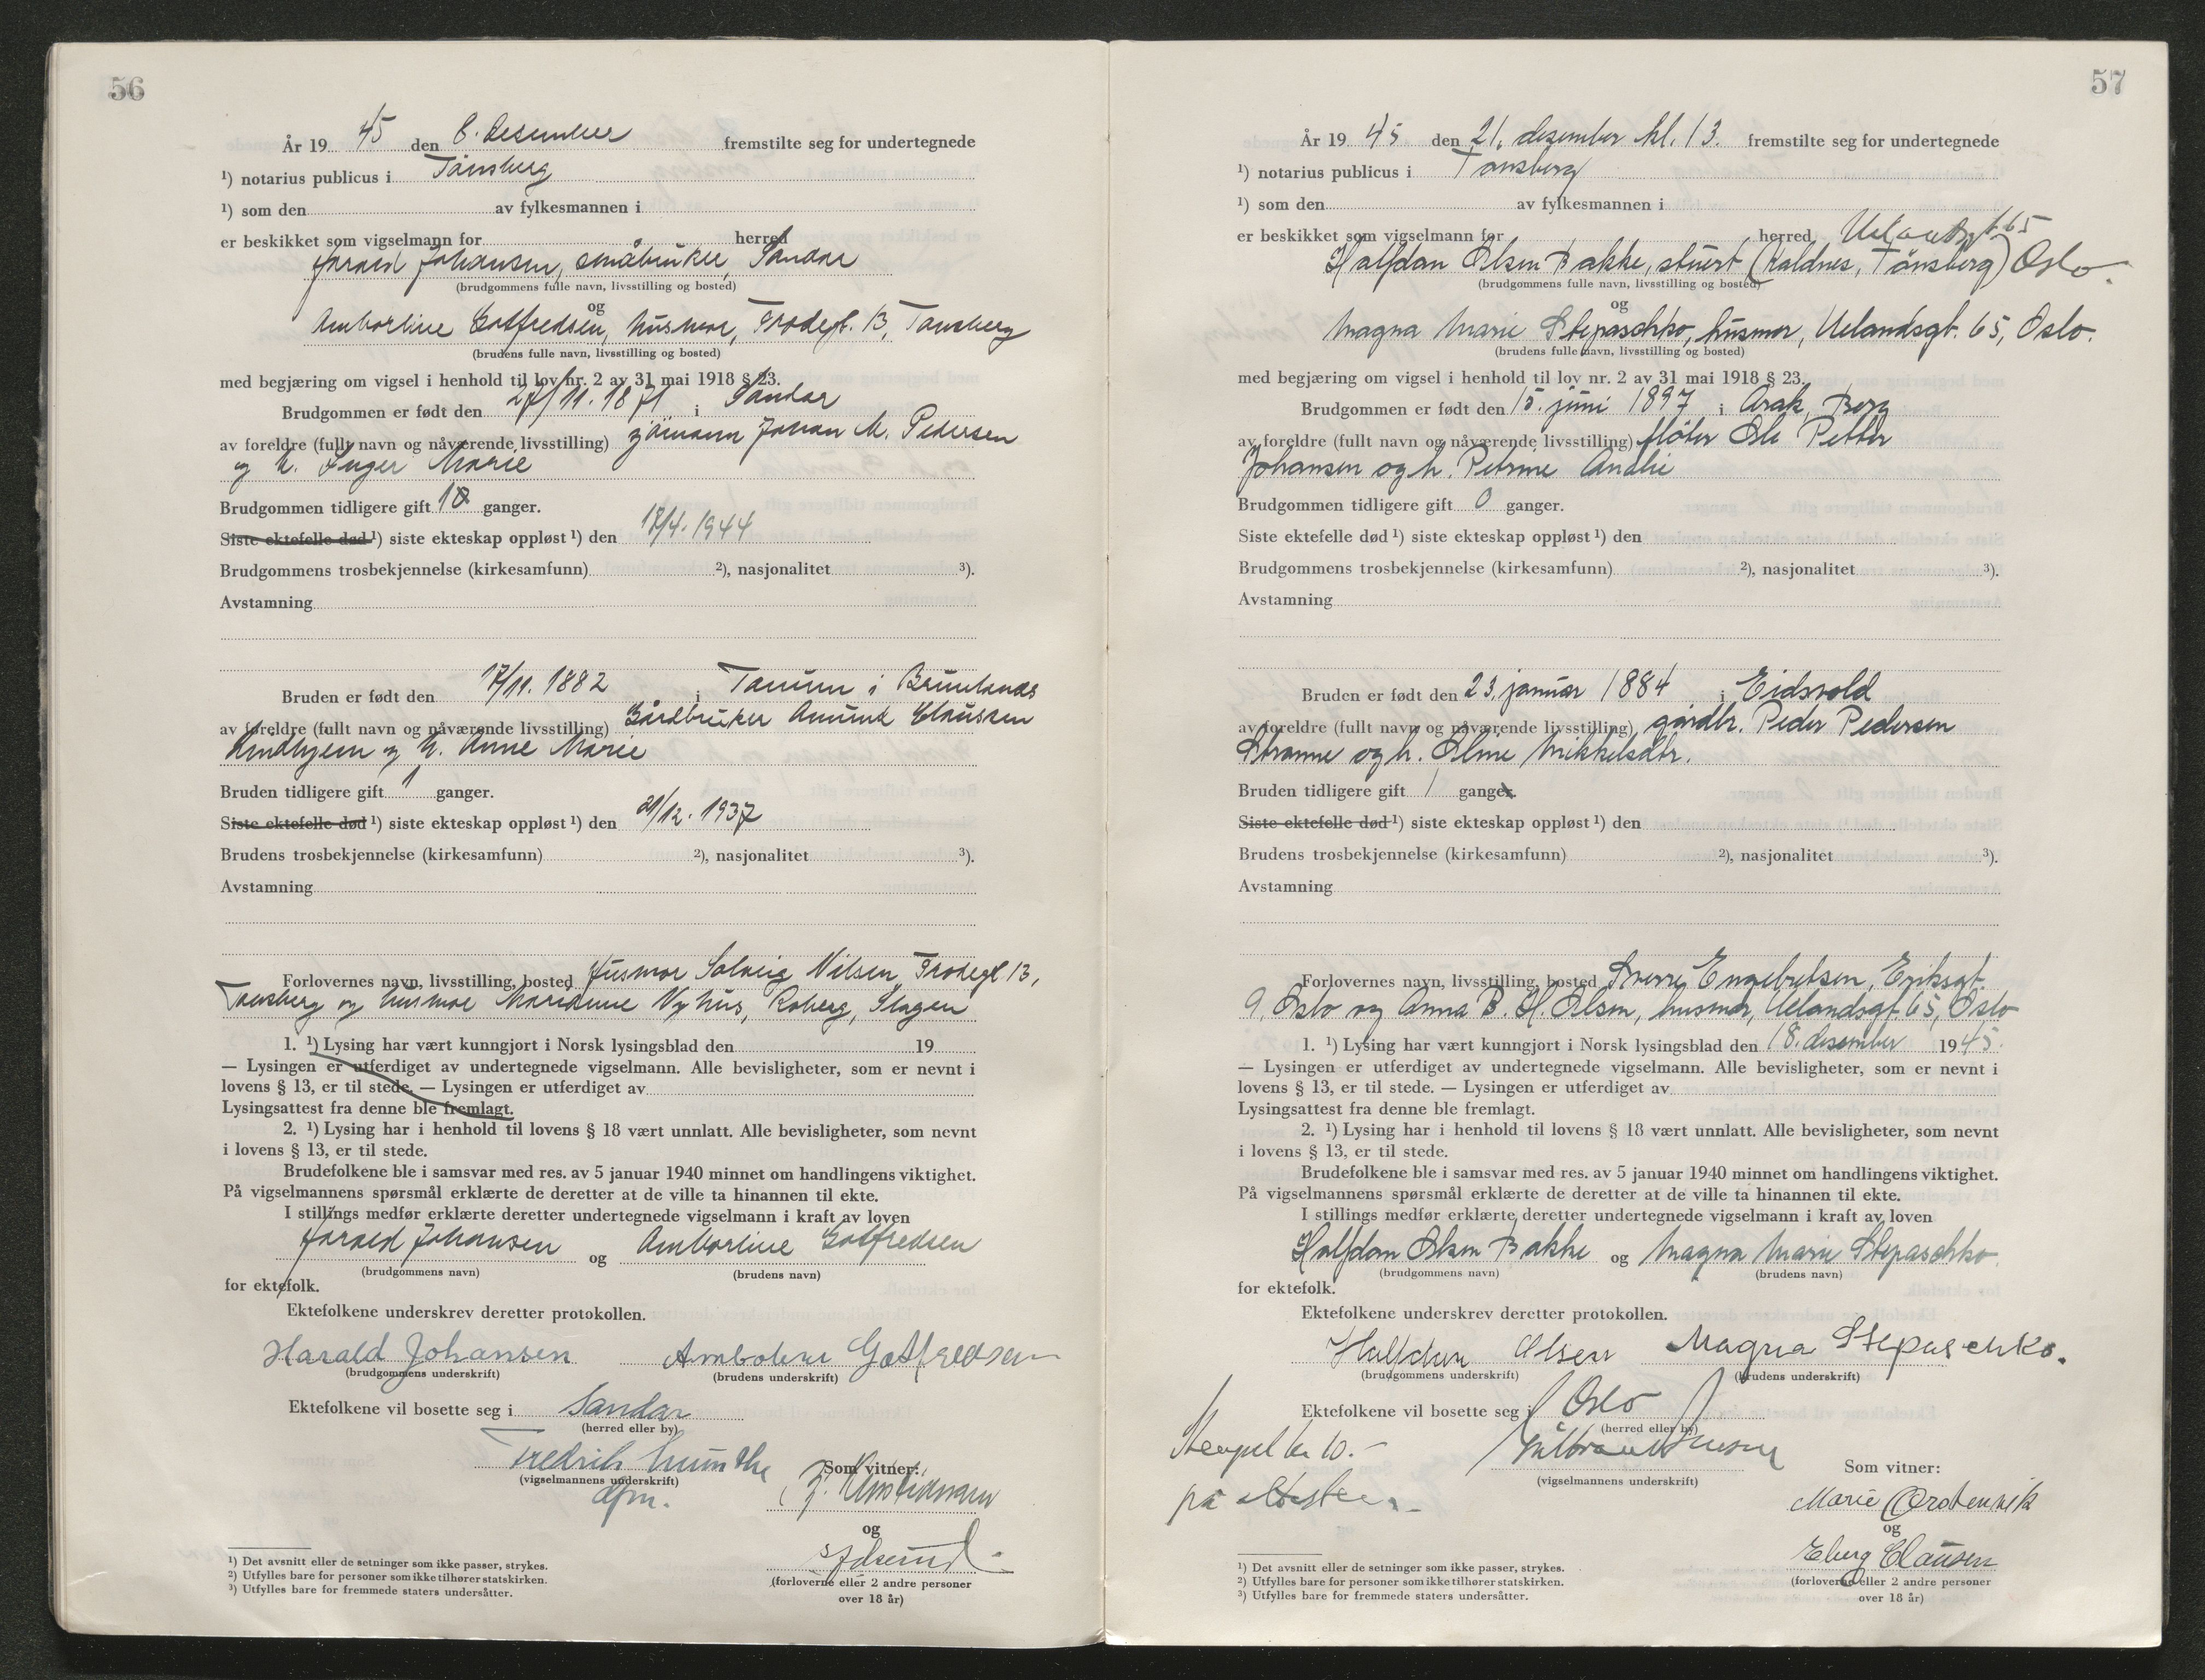 56
År 19 45 den 8. desember fremstilte seg for undertegnede
¹) notarius publicus i Tønsberg
¹) som den av fylkesmannen i
er beskikket som vigselmann for herred
Harald Johansen, småbruker, Sandar
(brudgommens fulle navn, livsstilling og bosted)
og
Amborline Gotfredsen, husmor, Frodegt. 13, Tønsberg
(brudens fulle navn, livsstilling og bosted)
med begjæring om vigsel i henhold til lov nr. 2 av 31 mai 1918 § 23.
Brudgommen er født den 27/11. 1871 i Sandar
av foreldre (fullt navn og nåværende livsstilling) sjømann Johan M. Pedersen
og h. Inger Marie
Brudgommen tidligere gift 1 ganger.
Siste ektefelle død ¹) siste ekteskap oppløst ¹) den 17/4. 1944
Brudgommens trosbekjennelse (kirkesamfunn) ²), nasjonalitet ³).
Avstamning
Bruden er født den 17/11. 1882 i Tanum i Brunlanes
av foreldre (fullt navn og nåværende livsstilling) Gårdbruker Amund Claussen
Lindhjem og h. Anne Marie
Bruden tidligere gift 1 ganger.
Siste ektefelle død ¹) siste ekteskap oppløst ¹) den 21/12. 1937
Brudens trosbekjennelse (kirkesamfunn) ²), nasjonalitet ³).
Avstamning
Forlovernes navn, livsstilling, bosted Husmor Solveig Nilsen, Frodegt 13,
Tønsberg og husmor Marianne Nyhus, Roberg, Slagen
1. ¹) Lysing har vært kunngjort i Norsk lysingsblad den 19
— Lysingen er utferdiget av undertegnede vigselmann. Alle bevisligheter, som er nevnt i
lovens § 13, er til stede. — Lysingen er utferdiget av
Lysingsattest fra denne ble fremlagt.
2. ¹) Lysing har i henhold til lovens § 18 vært unnlatt. Alle bevisligheter, som nevnt
i lovens § 13, er til stede.
Brudefolkene ble i samsvar med res. av 5 januar 1940 minnet om handlingens viktighet.
På vigselmannens spørsmål erklærte de deretter at de ville ta hinannen til ekte.
I stillings medfør erklærte deretter undertegnede vigselmann i kraft av loven
Harald Johansen og Amborline Gotfredsen
(brudgommens navn) (brudens navn)
for ektefolk.
Ektefolkene underskrev deretter protokollen.
Harald Johansen Ambolene Gotfredsen
(brudgommens underskrift) (brudens underskrift)
Ektefolkene vil bosette seg i Sandar
(herred eller by)
Fredrik Munthe
(vigselmannens underskrift) Som vitner:
dfm.
og
(forloverne eller 2 andre personer
over 18 år)
¹) Det avsnitt eller de setninger som ikke passer, strykes.
²) Utfylles bare for personer som ikke tilhører statskirken.
³) Utfylles bare for fremmede staters undersåtter.
57
År 19 45 den 21. desember kl. 13. fremstilte seg for undertegnede
¹) notarius publicus i Tønsberg
¹) som den av fylkesmannen i
er beskikket som vigselmann for herred Uelandsgt 65
Halfdan Olsen Bakke, stuert (Kaldnes, Tønsberg) Oslo.
(brudgommens fulle navn, livsstilling og bosted)
og
Magna Marie Stepaschko, husmor, Uelandsgt. 65, Oslo.
(brudens fulle navn, livsstilling og bosted)
med begjæring om vigsel i henhold til lov nr. 2 av 31 mai 1918 § 23.
Brudgommen er født den 15. juni 1897 i Arak, Berg
av foreldre (fullt navn og nåværende livsstilling) fløter Ole Petter
Johansen og h. Petrine Amalie
Brudgommen tidligere gift 0 ganger.
Siste ektefelle død ¹) siste ekteskap oppløst ¹) den
Brudgommens trosbekjennelse (kirkesamfunn) ²), nasjonalitet ³).
Avstamning
Bruden er født den 23. januar 1884 i Eidsvold
av foreldre (fullt navn og nåværende livsstilling) gårdbr. Peder Pedersen
Stramme og h. Oline Mikkelsdtr.
Bruden tidligere gift 1 ganger.
Siste ektefelle død ¹) siste ekteskap oppløst ¹) den
Brudens trosbekjennelse (kirkesamfunn) ²), nasjonalitet ³).
Avstamning
Forlovernes navn, livsstilling, bosted Sverre Engebretsen, Eriksgt.
9, Oslo og Anna B. H. Olsen, husmor, Uelandsgt. 65, Oslo
1. ¹) Lysing har vært kunngjort i Norsk lysingsblad den 18. desember 1945.
— Lysingen er utferdiget av undertegnede vigselmann. Alle bevisligheter, som er nevnt i
lovens § 13, er til stede. — Lysingen er utferdiget av
Lysingsattest fra denne ble fremlagt.
2. ¹) Lysing har i henhold til lovens § 18 vært unnlatt. Alle bevisligheter, som nevnt
i lovens § 13, er til stede.
Brudefolkene ble i samsvar med res. av 5 januar 1940 minnet om handlingens viktighet.
På vigselmannens spørsmål erklærte de deretter at de ville ta hinannen til ekte.
I stillings medfør erklærte deretter undertegnede vigselmann i kraft av loven
Halfdan Olsen Bakke og Magna Marie Stepaschko.
(brudgommens navn) (brudens navn)
for ektefolk.
Ektefolkene underskrev deretter protokollen.
Halfdan Olsen Magna Stepaschko.
(brudgommens underskrift) (brudens underskrift)
Ektefolkene vil bosette seg i Oslo
(herred eller by)
Stempel kr 10.-
(vigselmannens underskrift) Som vitner:
på attesten.
Marie
og
Eberg Clausen
(forloverne eller 2 andre personer
over 18 år)
¹) Det avsnitt eller de setninger som ikke passer, strykes.
²) Utfylles bare for personer som ikke tilhører statskirken.
³) Utfylles bare for fremmede staters undersåtter.